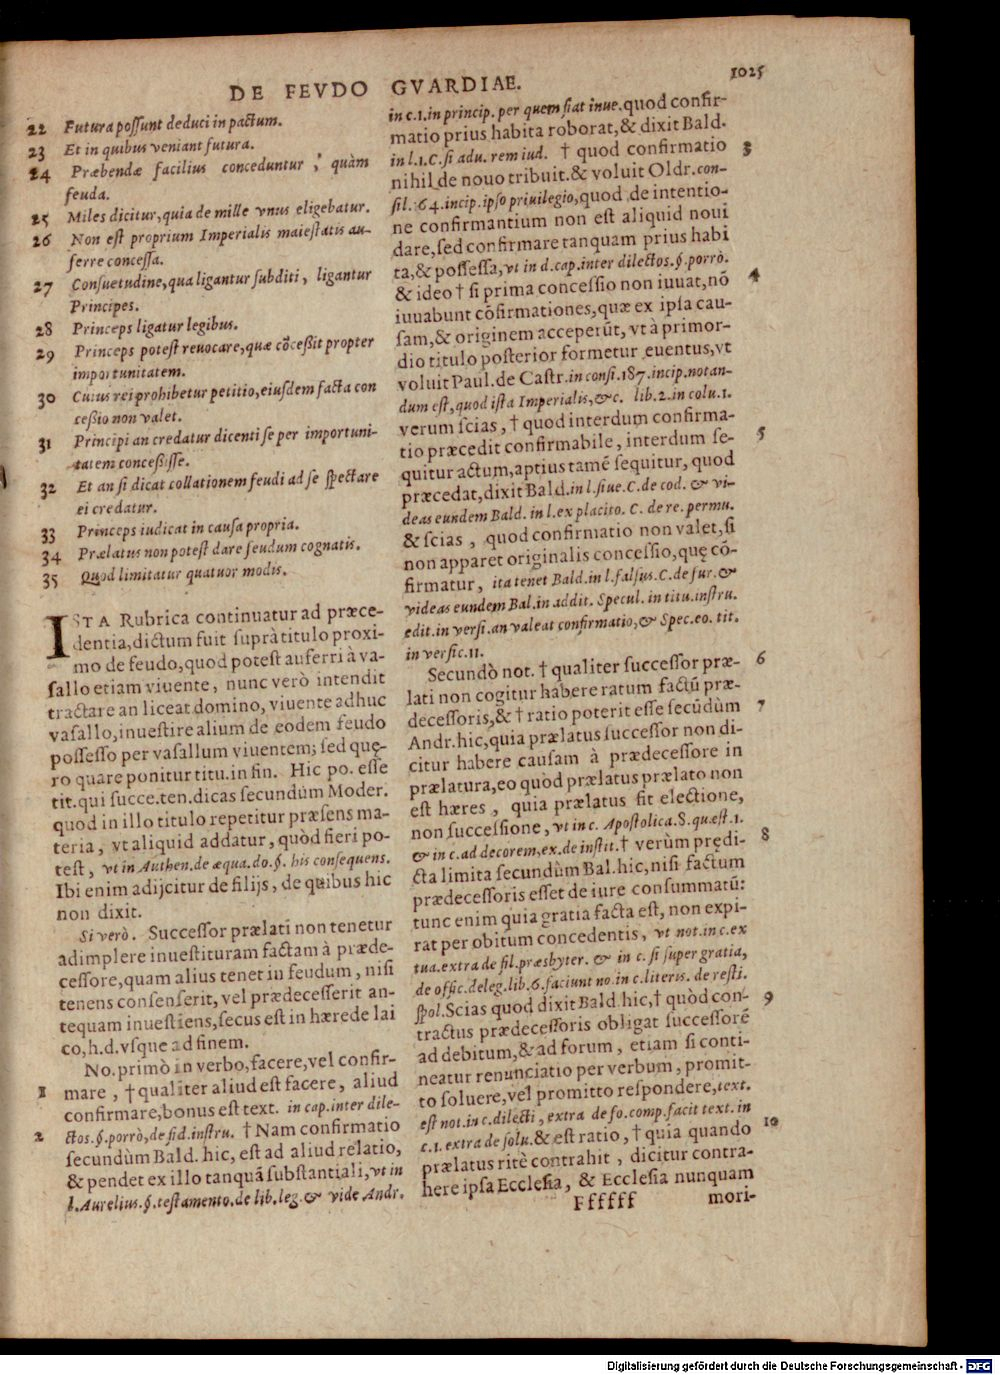 DE FEVDO GVARDIAE.
1025
22 Futura possunt deduci in pactum.
23 Et in quibus veniant futura.
24 Præbendæ facilius conceduntur, quàm
feuda.
25 Miles dicitur, quia de mille vnus eligebatur.
26 Non est proprium Imperialis maiestatis au-
ferre concessa.
27 Consuetudine, qua ligantur subditi, ligantur
Principes.
28 Princeps ligatur legibus.
29 Princeps potest reuocare, quæ cōcessit propter
importunitatem.
30 Cuius rei prohibetur petitio, eiusdem facta con
cessio non valet.
31 Principi an credatur dicenti se per importuni-
tatem concessisse.
32 Et an si dicat collationem feudi ad se spectare
ei credatur.
33 Princeps iudicat in causa propria.
34 Prælatus non potest dare feudum cognatis.
35 Quod limitatur quatuor modis.
ISTA Rubrica continuatur ad præce-
dentia, dictum fuit suprà titulo proxi-
mo de feudo, quod potest auferri à va-
sallo etiam viuente, nunc verò intendit
tractare an liceat domino, viuente adhuc
vasallo, inuestire alium de eodem feudo
possesso per vasallum viuentem; sed quę-
ro quare ponitur titu. in fin. Hic po. esse
tit. qui succe. ten. dicas secundùm Moder.
quod in illo titulo repetitur præsens ma-
teria, vt aliquid addatur, quòd fieri po-
test, vt in Authen. de æqua. do. §. his consequens.
Ibi enim adijcitur de filijs, de quibus hic
non dixit.
Si verò. Successor prælati non tenetur
adimplere inuestituram factam à præde-
cessore, quam alius tenet in feudum, nisi
tenens consenserit, vel prædecesserit an-
tequam inuestiens, secus est in hærede lai
co, h. d. vsque ad finem.
No. primò in verbo, facere, vel confir-
1 mare, † qualiter aliud est facere, aliud
confirmare, bonus est text. in cap. inter dile-
2 ctos. §. porrò, de fid. instru. † Nam confirmatio
secundùm Bald. hic, est ad aliud relatio,
& pendet ex illo tanquā substantiali, vt in
l. Aurelius. §. testamento. de lib. leg. & vide Andr.
in c. 1. in princip. per quem fiat inue. quod confir-
matio prius habita roborat, & dixit Bald.
in l. 1. C. si adu. rem iud. † quod confirmatio 3
nihil de nouo tribuit. & voluit Oldr. con-
sil. 64. incip. ipso priuilegio, quod de intentio-
ne confirmantium non est aliquid noui
dare, sed confirmare tanquam prius habi
ta, & possessa, vt in d. cap. inter dilectos. §. porrò.
& ideo † si prima concessio non iuuat, nō 4
iuuabunt cōfirmationes, quæ ex ipsa cau-
sam, & originem acceperūt, vt à primor-
dio titulo posterior formetur euentus, vt
voluit Paul. de Castr. in consi. 187. incip. notan-
dum est, quod ista Imperialis, &c. lib. 2. in colu. 1.
verum scias, † quod interdum confirma- 5
tio præcedit confirmabile, interdum se-
quitur actum, aptius tamē sequitur, quod
præcedat, dixit Bald. in l. siue. C. de cod. & vi-
deas eundem Bald. in l. ex placito. C. de re. permu.
& scias, quod confirmatio non valet, si
non apparet originalis concessio, quę cō-
firmatur, ita tenet Bald. in l. falsus. C. de fur. &
videas eundem Bal. in addit. Specul. in titu. instru.
edit. in versi. an valeat confirmatio, & Spec. eo. tit.
in versic. 11.
Secundò not. † qualiter successor præ- 6
lati non cogitur habere ratum factū præ-
decessoris, & † ratio poterit esse secūdùm 7
Andr. hic, quia prælatus successor non di-
citur habere causam à prædecessore in
prælatura, eo quòd prælatus prælato non
est hæres, quia prælatus fit electione,
non successione, vt in c. Apostolica. 8. quæst. 1.
& in c. ad decorem, ex. de instit. † verùm prędi- 8
cta limita secundùm Bal. hic, nisi factum
prædecessoris esset de iure consummatū:
tunc enim quia gratia facta est, non expi-
rat per obitum concedentis, vt not. in c. ex
tua. extra de fil. præsbyter. & in c. si super gratia,
de offic. deleg. lib. 6. faciunt no. in c. literis. de resti.
spol. Scias quod dixit Bald. hic, † quòd con- 9
tractus prædecessoris obligat successorē
ad debitum, & ad forum, etiam si conti-
neatur renunciatio per verbum, promit-
to soluere, vel promitto respondere, text.
est not. in c. dilecti, extra de fo. comp. facit text. in
c. 1. extra de solu. & est ratio, † quia quando 10
prælatus ritè contrahit, dicitur contra-
here ipsa Ecclesia, & Ecclesia nunquam
Ffffff mori-
Digitalisierung gefördert durch die Deutsche Forschungsgemeinschaft - DFG